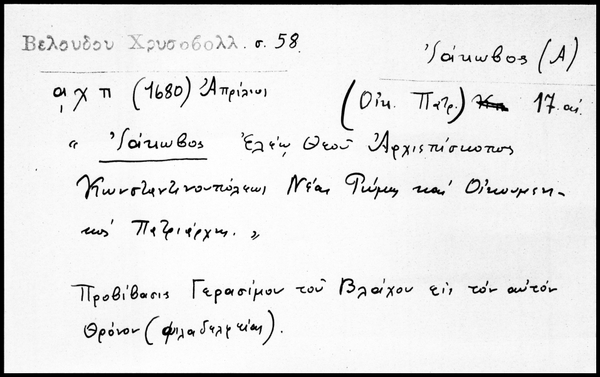 Βελουδου Χρυσοβολλ. σ. 58.
Ἰάκωβος (Α)
αχπ (1680) Ἀπρίλιος
(Οἰκ. Πατρ.) 17 αἰ.
" Ἰάκωβος Ἐλέῳ Θεοῦ Ἀρχιεπίσκοπος
Κωνσταντινουπόλεως Νέας Ρώμης καί Οἰκουμενι-
κός Πατριάρχης. "
Προβίβασις Γερασίμου τοῦ Βλάχου εἰς τόν αὐτόν
Θρόνον (Φιλαδελφείας).